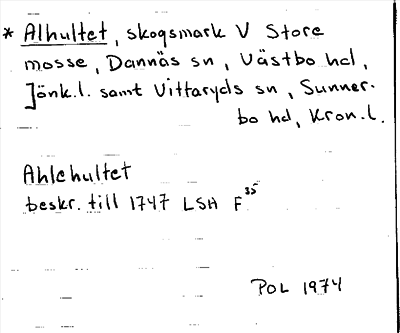 * Alhultet, skogsmark V Store
mosse, Dannäs sn, Västbo hd,
Jönk.l. samt Vittaryds sn, Sunner-
bo hd, Kron.l.
Ahlehultet
beskr. till 1747 LSA F 35
POL 1974